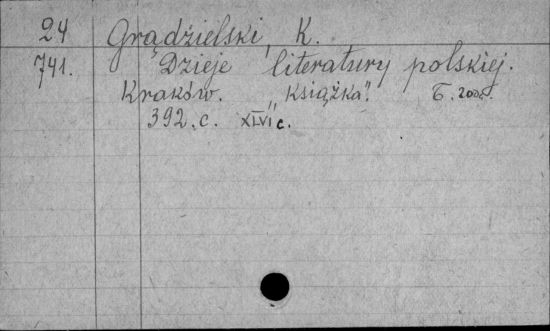 24 Grądzielski, K.
741. Dzieje literatury polskiej.
Kraków. "Książka".
392.c. XLVI c.